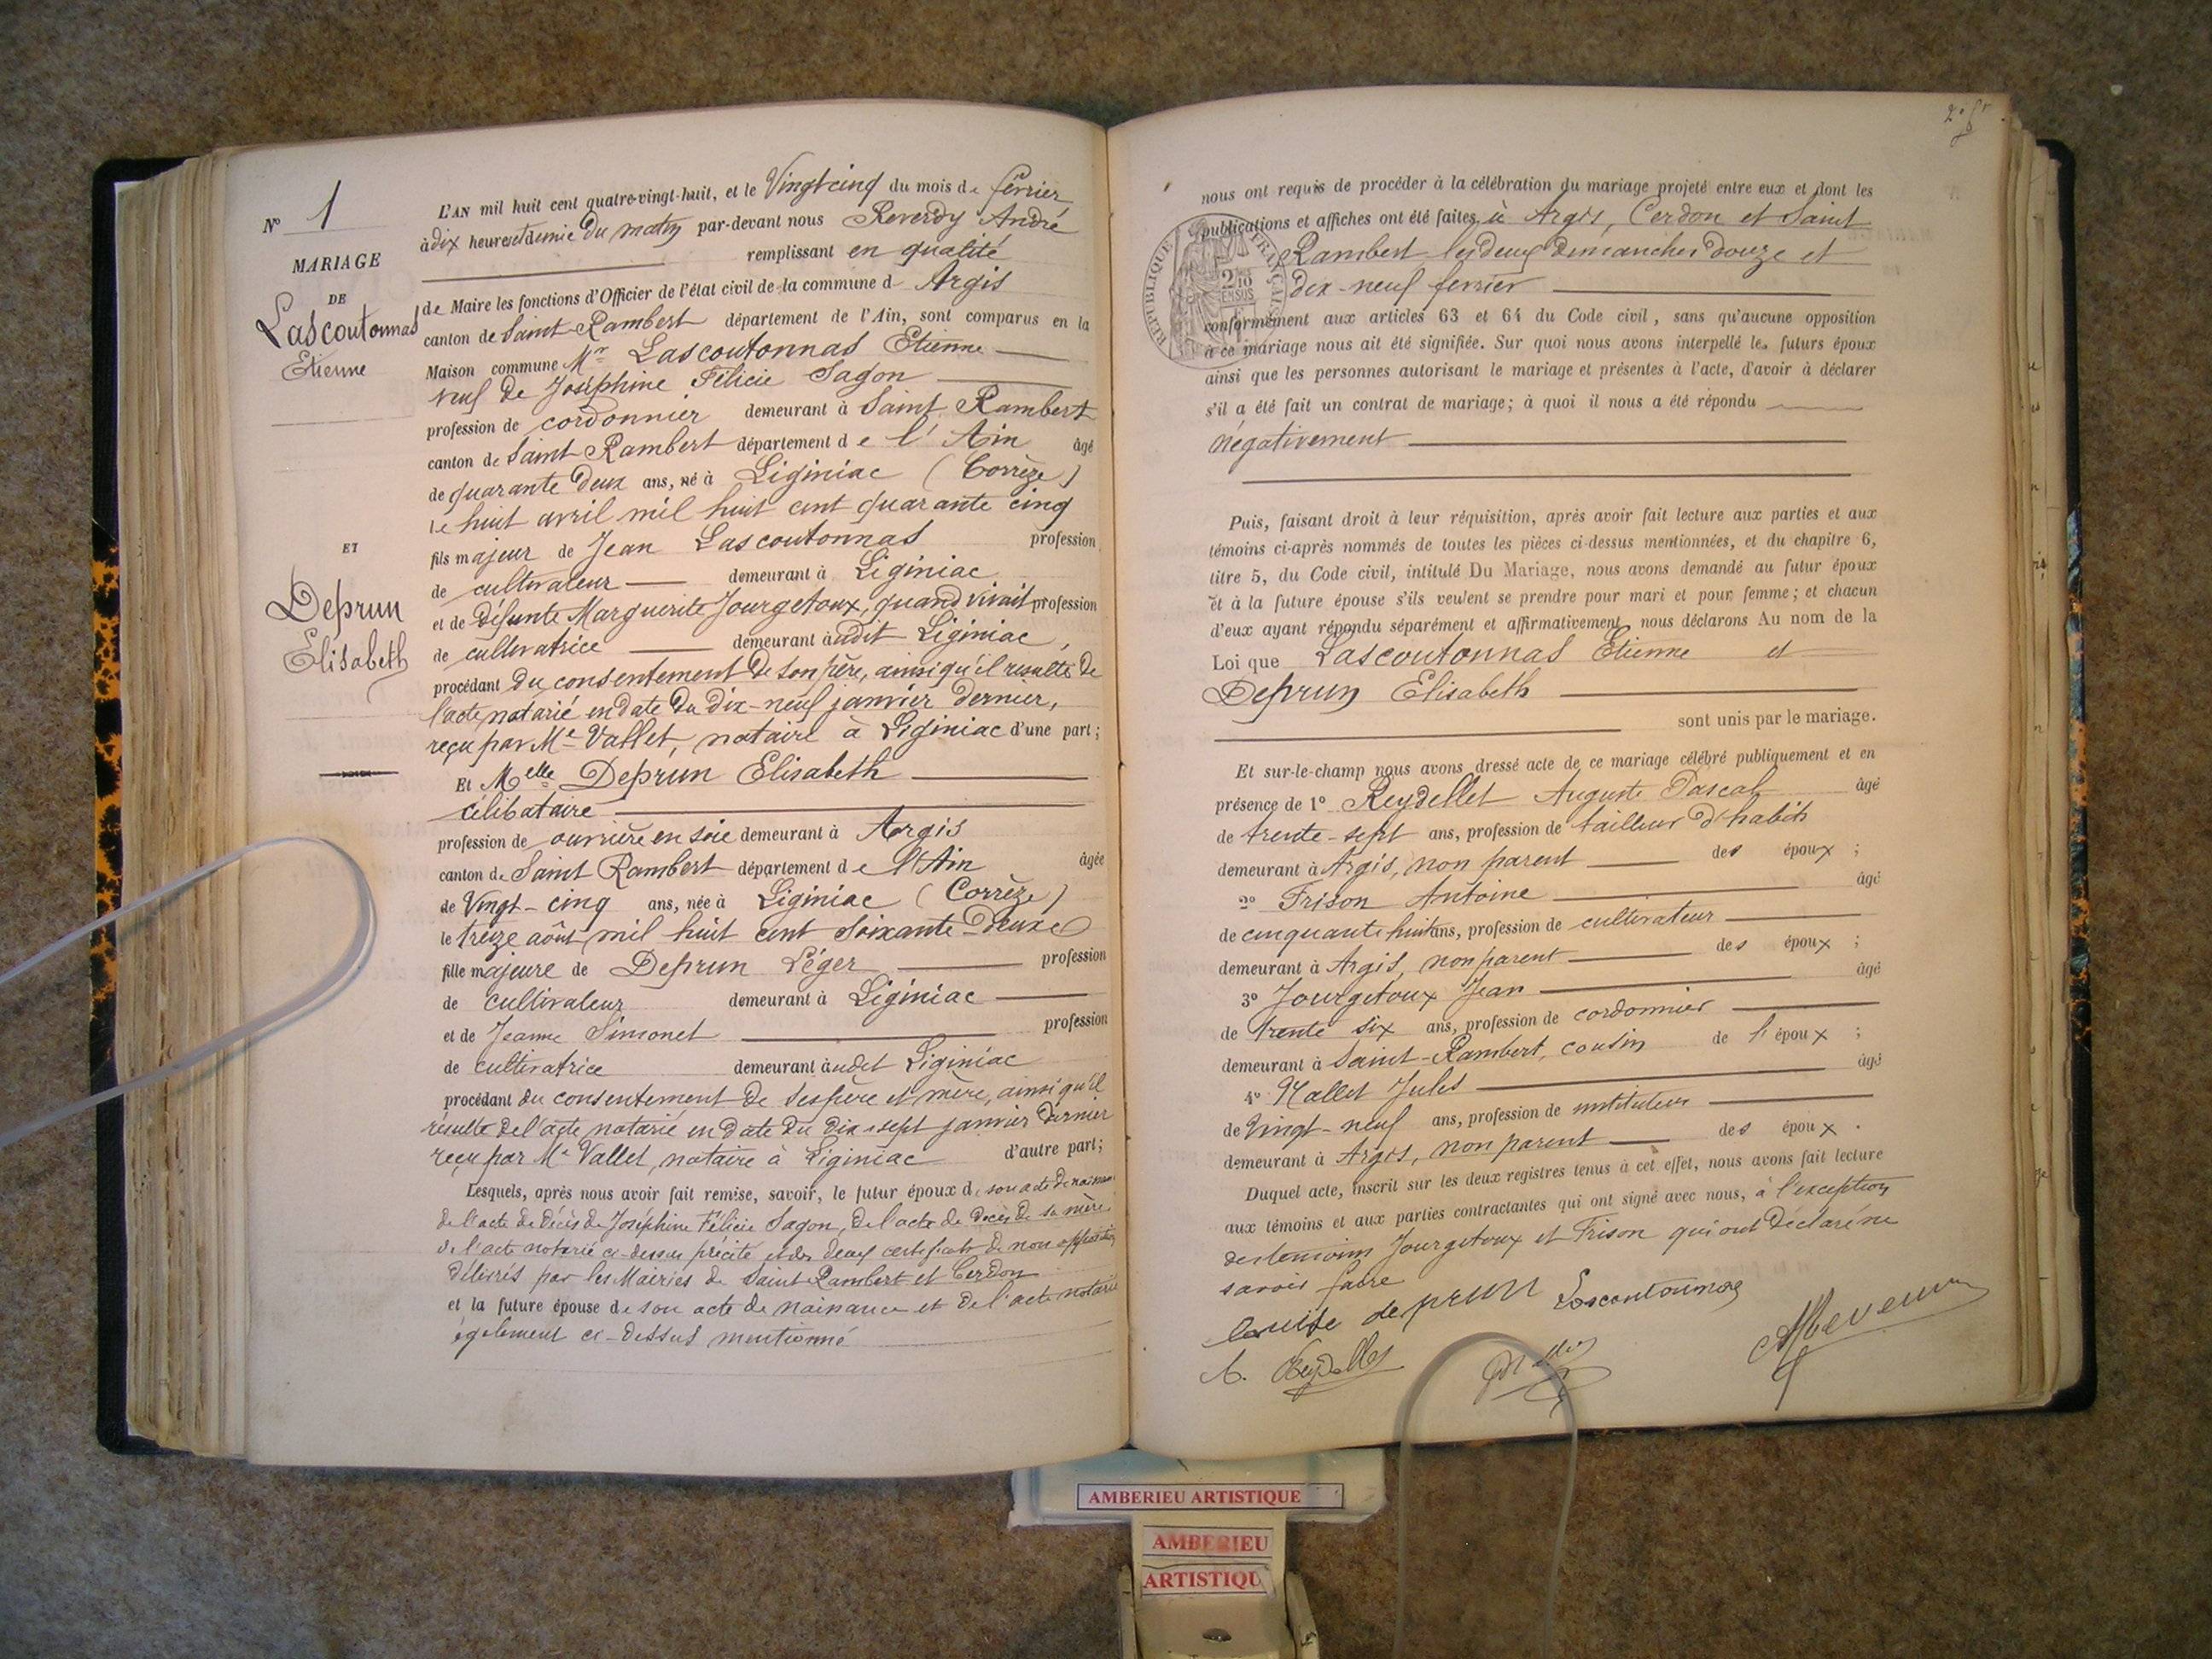 N° 1
MARIAGE
DE
Lascoutounas
Etienne
ET
Deprun
Elisabeth
L'AN mil huit cent quatre-vingt-huit, et le Vingt cinq du mois de février
à dix heures et demie du matin par-devant nous Reverdy André
remplissant en qualité
de Maire les fonctions d'Officier de l'état civil de la commune d Argis
canton de Saint-Rambert département de l'Ain, sont comparus en la
Maison commune Mr Lascoutonnas Etienne
veuf de Joséphine Félicie Sagon
profession de cordonnier demeurant à Saint Rambert
canton de Saint Rambert département de l'Ain âgé
de quarante deux ans, né à Liginiac (Corrèze)
le huit avril mil huit cent quarante cinq
fils majeur de Jean Lascoutonnas profession
de cultivateur demeurant à Liginiac
et de défunte Marguerite Jourgetoux, quand vivait profession
de cultivatrice demeurant audit Liginiac,
procédant du consentement de son père, ainsi qu'il resulte de
l'acte notarié en date du dix-neuf janvier dernier,
reçu par Me Vallet, notaire à Liginiac d'une part;
Et Melle Deprun Elisabeth
célibataire
profession de ouvrière en soie demeurant à Argis
canton de Saint Rambert département de l'Ain âgée
de Vingt-cinq ans, née à Liginiac (Corrèze)
le treize août mil huit cent soixante-deux
fille majeure de Deprun Léger profession
de cultivateur demeurant à Liginiac
et de Jeanne Simonet profession
de cultivatrice demeurant audit Liginiac
procédant du consentement de ses père et mère, ainsi qu'il
résulte de l'acte notarié en date du dix sept janvier dernier
reçu par Me Vallet, notaire à Liginiac d'autre part;
Lesquels, après nous avoir fait remise, savoir, le futur époux de son acte de naissance
de l'acte de décès de Joséphine Félicie Sagon, de l'acte de décès de sa mère
de l'acte notarié ci-dessus précité et des deux certificats de non opposition
délivrés par les Mairies de Saint-Rambert et Cerdon
et la future épouse de son acte de naissance et de l'acte notarié
également ci-dessus mentionné
nous ont requis de procéder à la célébration du mariage projeté entre eux et dont les
publications et affiches ont été faites à Argis, Cerdon et Saint
Rambert les deux dimanches douze et
dix-neuf ferrier
conformément aux articles 63 et 64 du Code civil, sans qu'aucune opposition
à ce mariage nous ait été signifiée. Sur quoi nous avons interpellé les futurs époux
ainsi que les personnes autorisant le mariage et présentes à l'acte, d'avoir à déclarer
s'il a été fait un contrat de mariage; à quoi il nous a été répondu
négativement
REPUBLIQUE FRANÇAISE
Puis, faisant droit à leur réquisition, après avoir fait lecture aux parties et aux
témoins ci-après nommés de toutes les pièces ci-dessus mentionnées, et du chapitre 6,
titre 5, du Code civil, intitulé Du Mariage, nous avons demandé au futur époux
et à la future épouse s'ils veulent se prendre pour mari et pour femme; et chacun
d'eux ayant répondu séparément et affirmativement nous déclarons Au nom de la
Loi que Lascoutonnas Etienne et
Deprun Elisabeth
sont unis par le mariage.
Et sur-le-champ nous avons dressé acte de ce mariage célébré publiquement et en
présence de 1° Reydellet Auguste Pascal âgé
de trente-sept ans, profession de tailleur d'habits
demeurant à Argis, non parent des époux;
2° Frison Antoine âgé
de cinquante huit ans, profession de cultivateur
demeurant à Argis, non parent des époux;
3° Jourgetoux Jean âgé
de trente six ans, profession de cordonnier
demeurant à Saint-Rambert, cousin de l'époux;
4° Mallet Jules âgé
de Vingt-neuf ans, profession de instituteur
demeurant à Argis, non parent des époux.
Duquel acte, inscrit sur les deux registres tenus à cet effet, nous avons fait lecture
aux témoins et aux parties contractantes qui ont signé avec nous, à l'exception
des temoins Jourgetoux et Frison qui ont déclaré ne
savoir faire
louise deprun Lascoutounas
A. Reydellet
AMBERIEU ARTISTIQUE
AMBERIEU
ARTISTIQU